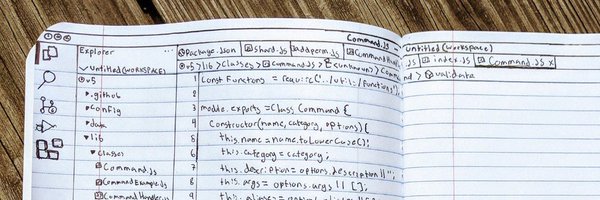 Command.js - Untitled (Workspace)
Explorer
Package.json Shard.js addperm.js CommandHandler index.js Command.js x
Untitled (WORKSPACE)
v5 > lib > Classes > Command.js > Command > validate
v5
.github
Config
data
lib
Classes
Command.js
CommandExample.js
CommandHandler.js
1 Const Functions = require("../utils/Functions
2
3 module.exports = Class Command {
4 Constructor(name, category, options) {
5 this.name = name.toLowerCase();
6 this.category = category;
7 this.description = options.description || "";
8 this.args = options.args || [];
9 this.aliases = options.aliases